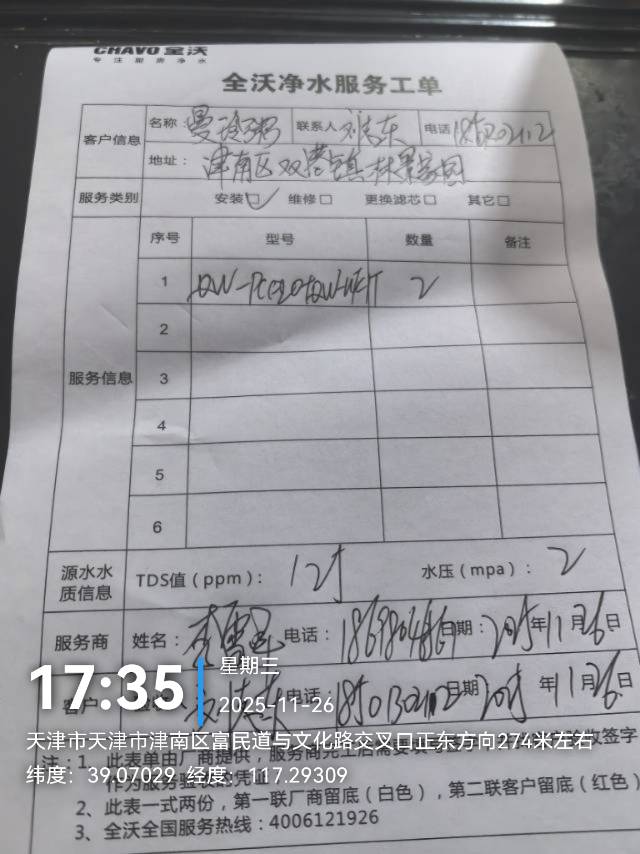 CHAVO 全沃
专注厨房净水
全沃净水服务工单
客户信息 名称： 曼玲粥 联系人 电话
地址： 津南区双港镇林果家园
服务类别 安装☑ 维修□ 更换滤芯□ 其它□
服务信息 序号 型号 数量 备注
1 2
2
3
4
5
6
源水水质信息 TDS值（ppm）： 水压（mpa）： 2
服务商 姓名： 电话： 日期： 2025年11月26日
客户 电话： 18501302102 日期 2025年11月26日
17:35 星期三
2025-11-26
天津市天津市津南区富民道与文化路交叉口正东方向274米左右
纬度：39.07029 经度：117.29309
注：1、此表单由厂商提供，服务商完工后需要
作为服务验收的凭证
2、此表一式两份，第一联厂商留底（白色），第二联客户留底（红色）
3、全沃全国服务热线：4006121926